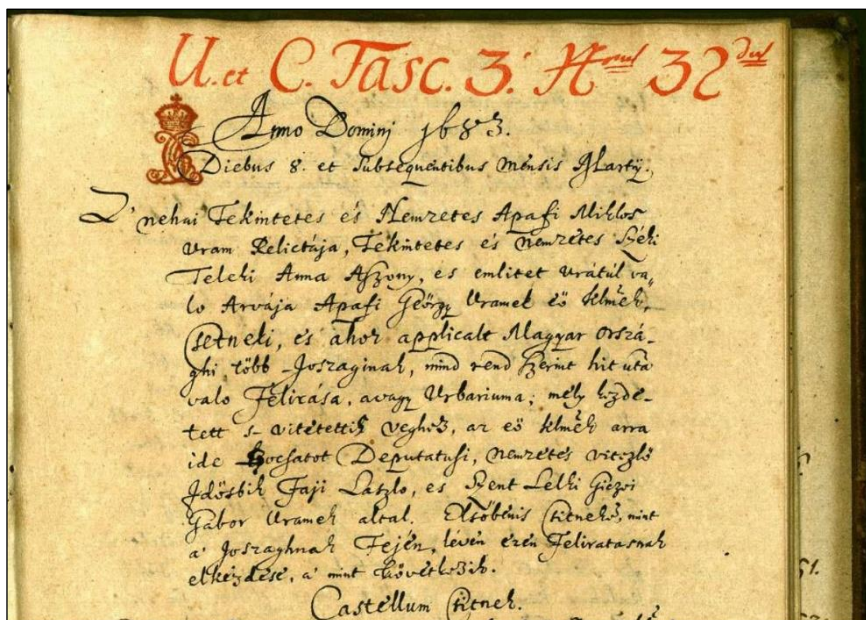 U. et C. Fasc. 3. Nrus 32dus
Anno Domini 1683.
Diebus 8. et Subsequentibus Mensis Martÿ.
Nehai Tekintetes és Nemzetes Apafi Miklos
Uram Relictája, Tekintetes és Nemzetes Széki
Teleki Anna Aszony, es emlitet Urátúl va„
lo Arvája Apafi Geörgy Uramek eö klmék,
Csetneki, és ahoz applicalt Magyar orszá„
ghi több Joszaginak, mind rend szerint hit utā
valo Felirása, avagy Urbariuma; mely kezde„
tett s vitetettik veghez, az eö klmék arra
ide bocsatot Deputatusi, nemzetes vitezlő
Idősbik Faji László, es Szent Lelki Giczei
Gábor Uramek altal. Elsőbenis Csitneké, mint
a' Joszaghnak Fején, lévén ezen Feliratasnak
elkezdése, a' mint következik.
Castellum Csitnek.